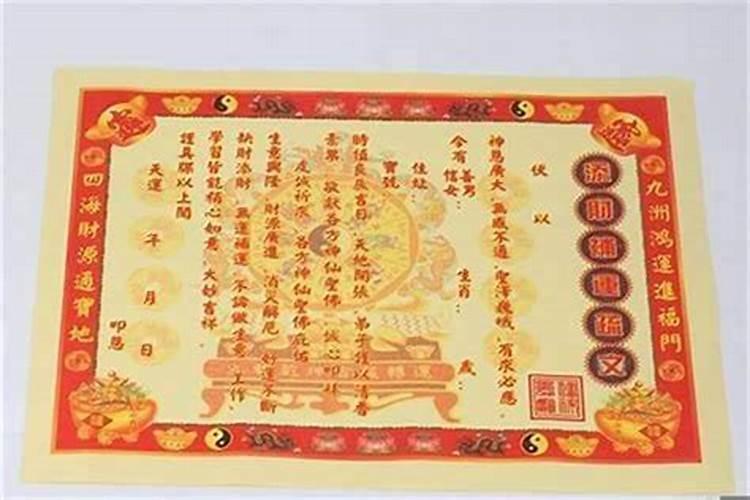 九洲鴻運進福門
添財補運疏文
伏以
神恩廣大 無感不通 聖澤巍峨 有求必應
今有善男信女： 生肖： 歲：
住址：
寶號
時值良辰吉日 天地開張 弟子謹以清香
素果 敬獻各方神仙聖佛 誠心叩拜
虔誠祈求 各方神仙聖佛庇佑
生意興隆 財源廣進 消災解厄 好運不斷
缺財添財 無運補運 不論做生意、工作、
學習皆能稱心如意 大妙吉祥
謹具牒以上聞
天運 年 月 日
叩恩
四海財源通寶地